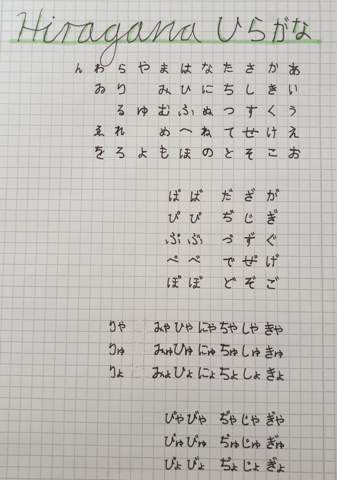 Hiragana ひらがな
ん わ ら や ま は な た さ か あ
ゐ り み ひ に ち し き い
る ゆ む ふ ぬ つ す く う
ゑ れ め へ ね て せ け え
を ろ よ も ほ の と そ こ お
ぱ ば だ ざ が
ぴ び ぢ じ ぎ
ぷ ぶ づ ず ぐ
ぺ べ で ぜ げ
ぽ ぼ ど ぞ ご
りゃ みゃ ひゃ にゃ ちゃ しゃ きゃ
りゅ みゅ ひゅ にゅ ちゅ しゅ きゅ
りょ みょ ひょ にょ ちょ しょ きょ
ぴゃ びゃ ぢゃ じゃ ぎゃ
ぴゅ びゅ ぢゅ じゅ ぎゅ
ぴょ びょ ぢょ じょ ぎょ